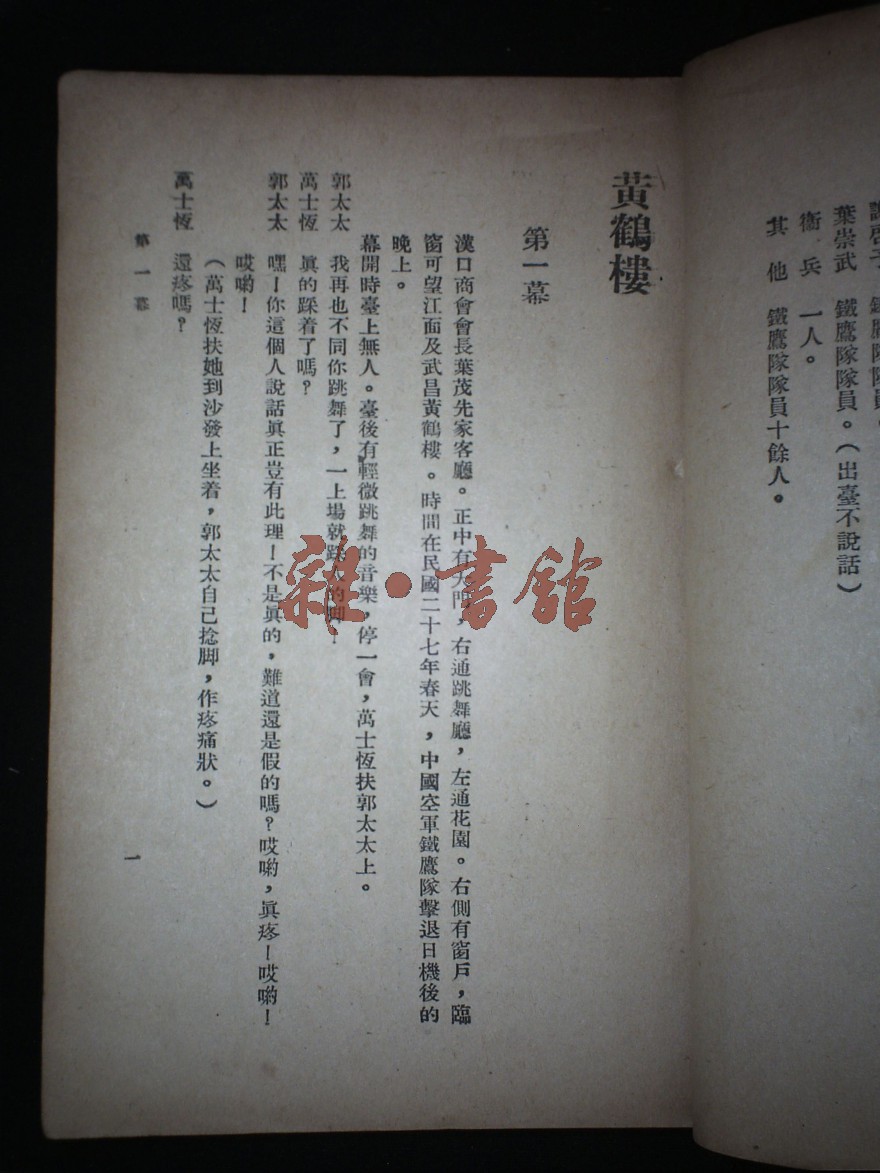 葉崇武　鐵鷹隊隊員。（出臺不說話）
衞　兵　一人。
其　他　鐵鷹隊隊員十餘人。
黃鶴樓
第一幕
漢口商會會長葉茂先家客廳。正中有大門，右通跳舞廳，左通花園。右側有窗戶，臨
窗可望江面及武昌黃鶴樓。時間在民國二十七年春天，中國空軍鐵鷹隊擊退日機後的
晚上。
幕開時臺上無人。臺後有輕微跳舞的音樂，停一會，萬士恆扶郭太太上。
郭太太　我再也不同你跳舞了，一上場就踩人的脚！
萬士恆　眞的踩着了嗎？
郭太太　嘿！你這個人說話眞正豈有此理！不是眞的，難道還是假的嗎？哎喲，眞疼！哎喲！
哎喲！
（萬士恆扶她到沙發上坐着，郭太太自己捻脚，作疼痛狀。）
萬士恆　還疼嗎？
第一幕
一
雜·書館